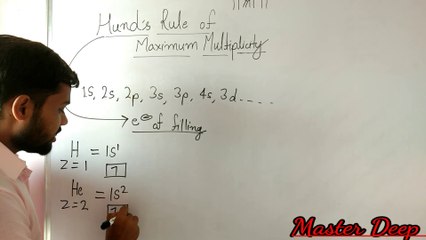 Hund's Rule of
Maximum Multiplicity
1s, 2s, 2p, 3s, 3p, 4s, 3d....
e⊖ of filling
H = 1s¹
Z=1 1
He = 1s²
Z=2
Master Deep